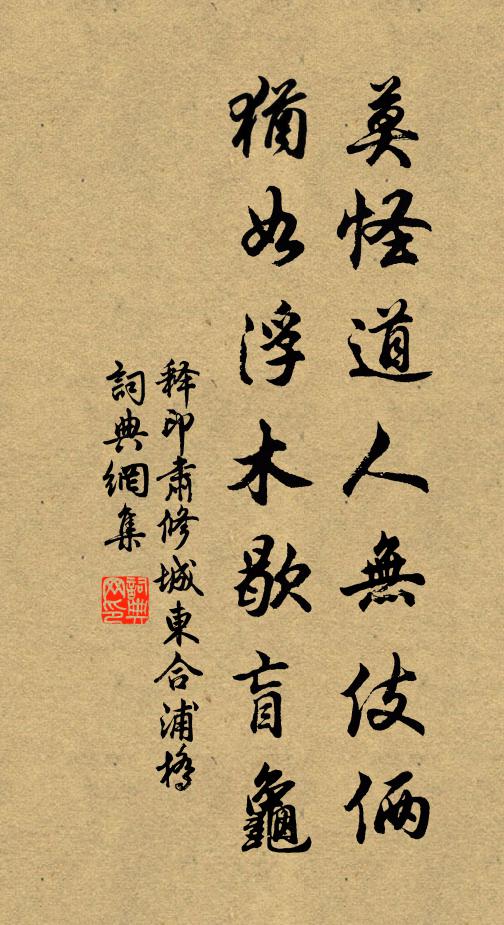 莫怪道人無伎倆
猶如浮木歇盲龜
釋印肅修城東合浦橋
詞典網集
詞典網印